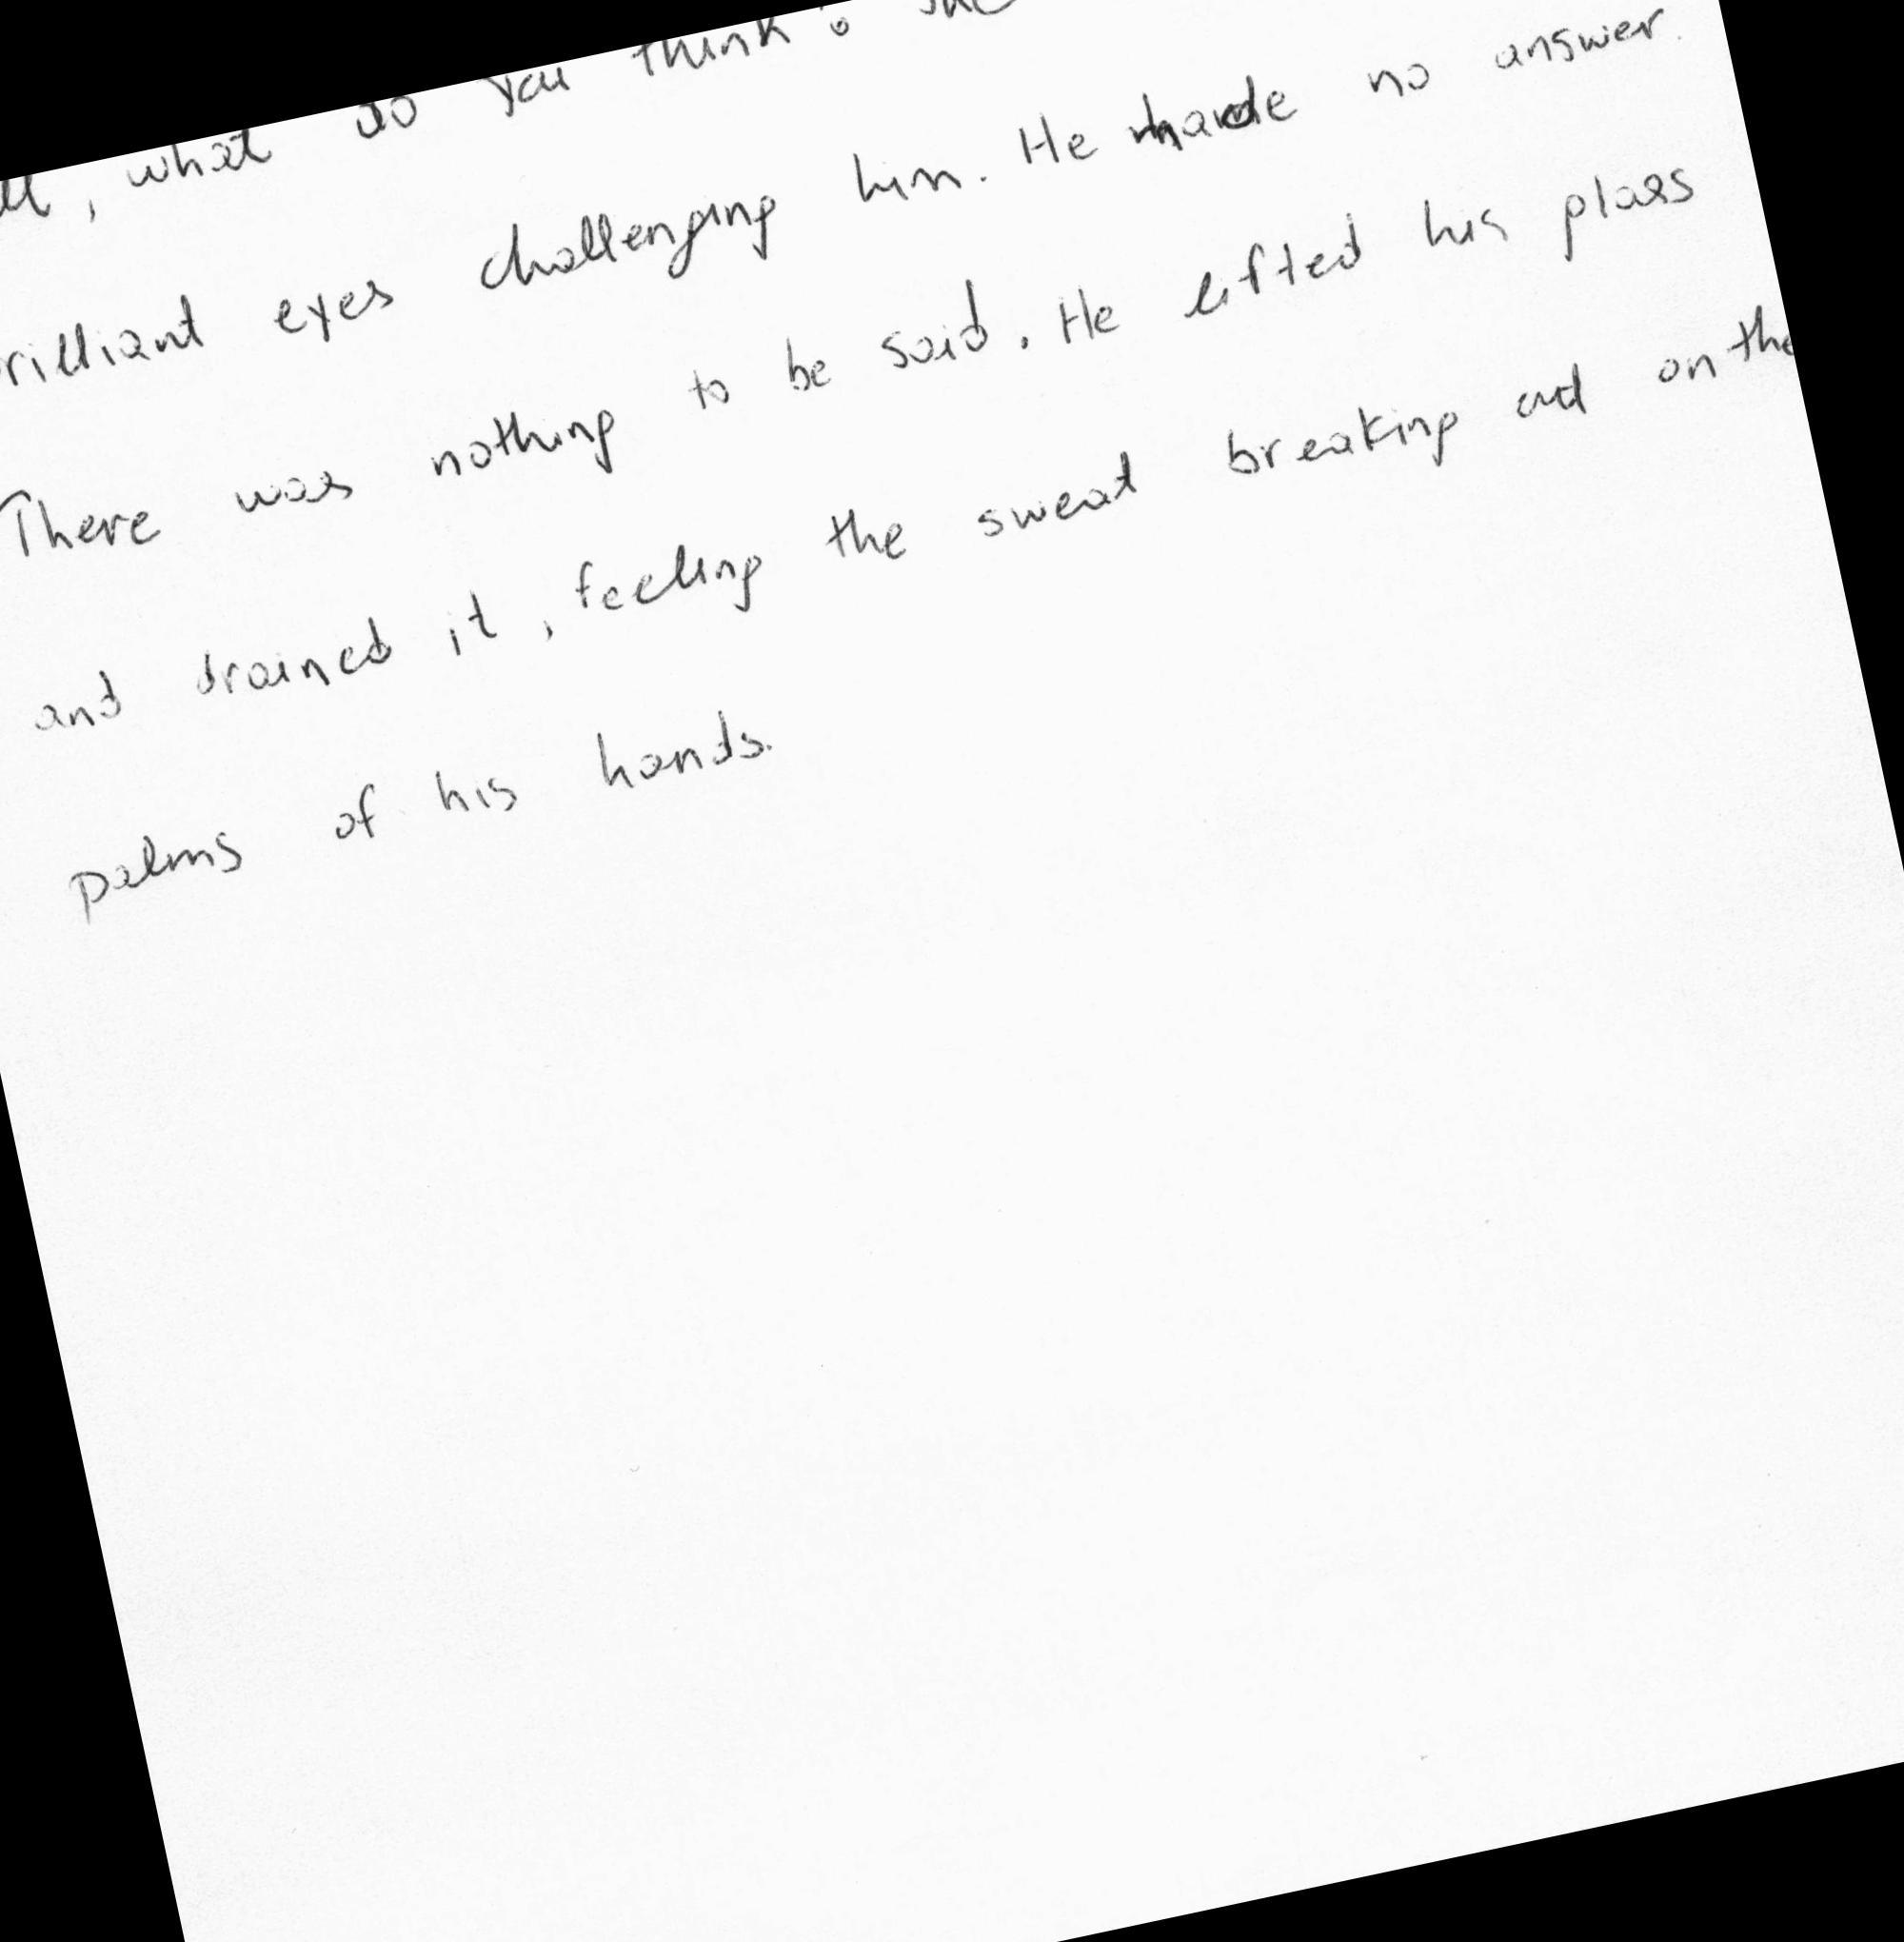 what do you think? She
brilliant eyes challenging him. He made no answer.
There was nothing to be said. He lifted his glass
and drained it, feeling the sweat breaking out on the
palms of his hands.